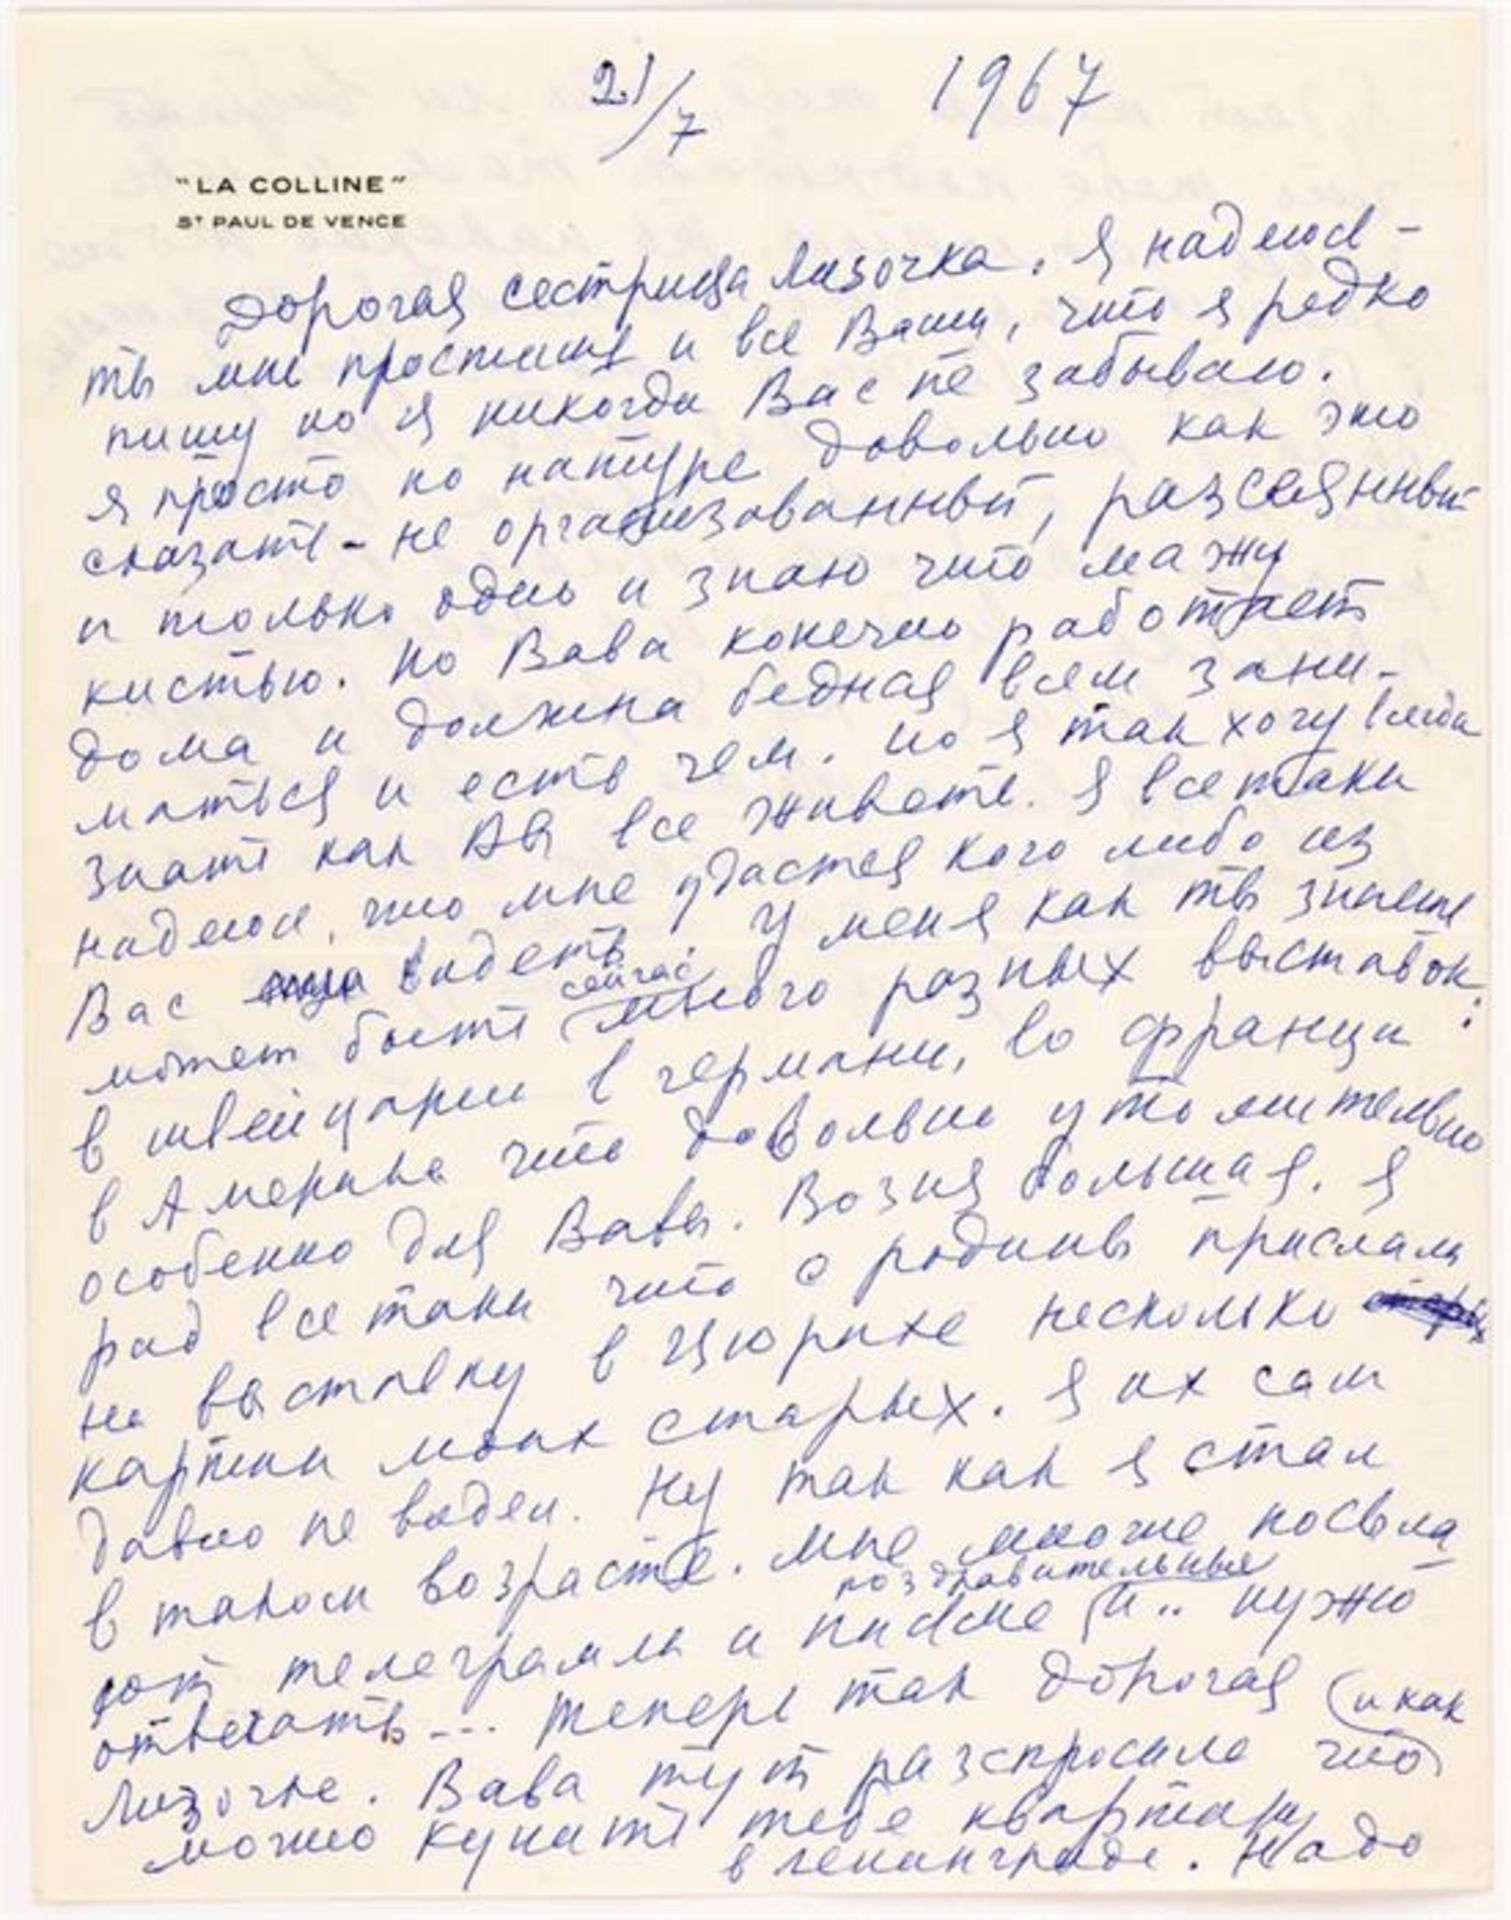 21/7 1967
"LA COLLINE"
ST PAUL DE VENCE
Дорогая сестрица Лизочка. Я надеюсь -
ты мне простишь и все Ваши, что я редко
пишу но я никогда Вас не забываю.
Я просто по натуре довольно как это
сказать - не организованный, разсеянный
и только одно и знаю что мажу
кистью. Но Вава конечно работает
дома и должна бедная всем зани-
маться и есть чем. Но я так хочу всегда
знать как Вы все живете. Я все таки
надеюсь, что мне удастся кого либо из
Вас видеть. У меня как ты знаешь
может быть сейчас много разных выставок:
в швейцарии в германии, во франции
в Америке что довольно утомительно
особенно для Вавы. Возня большая. Я
рад все таки что с родины прислали
на выставку в Цюрихе несколько
картин моих старых. Я их сам
давно не видел. Ну так как я стал
в таком возрасте. Мне многие посыла
ют телеграммы и письме поздравительные и.. нужно
отвечать... Теперь так дорогая (и как
Лизочке. Вава тут разспросила что)
можно купить тебе квартиру
в ленинграде. Надо